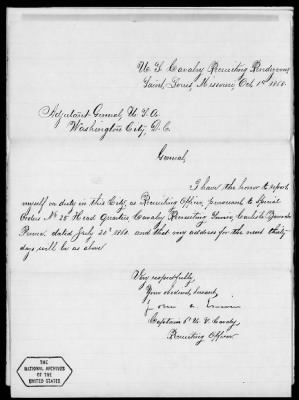 U. S. Cavalry Recruiting Rendezvous
Saint Louis, Missouri, Oct 1st 1868.
Adjutant General, U. S. A.
Washington City, D. C.
General,
I have the honor to report
myself on duty in this City, as Recruiting Officer, pursuant to Special
Orders No 28 Head Quarters Cavalry Recruiting Service, Carlisle Barracks
Penna. dated July 20" and that my address for the next thirty
days will be as above
Very respectfully,
Your obedient servant,
Captain 6" U. S. Cavalry,
Recruiting Officer
THE
NATIONAL ARCHIVES
OF THE
UNITED STATES